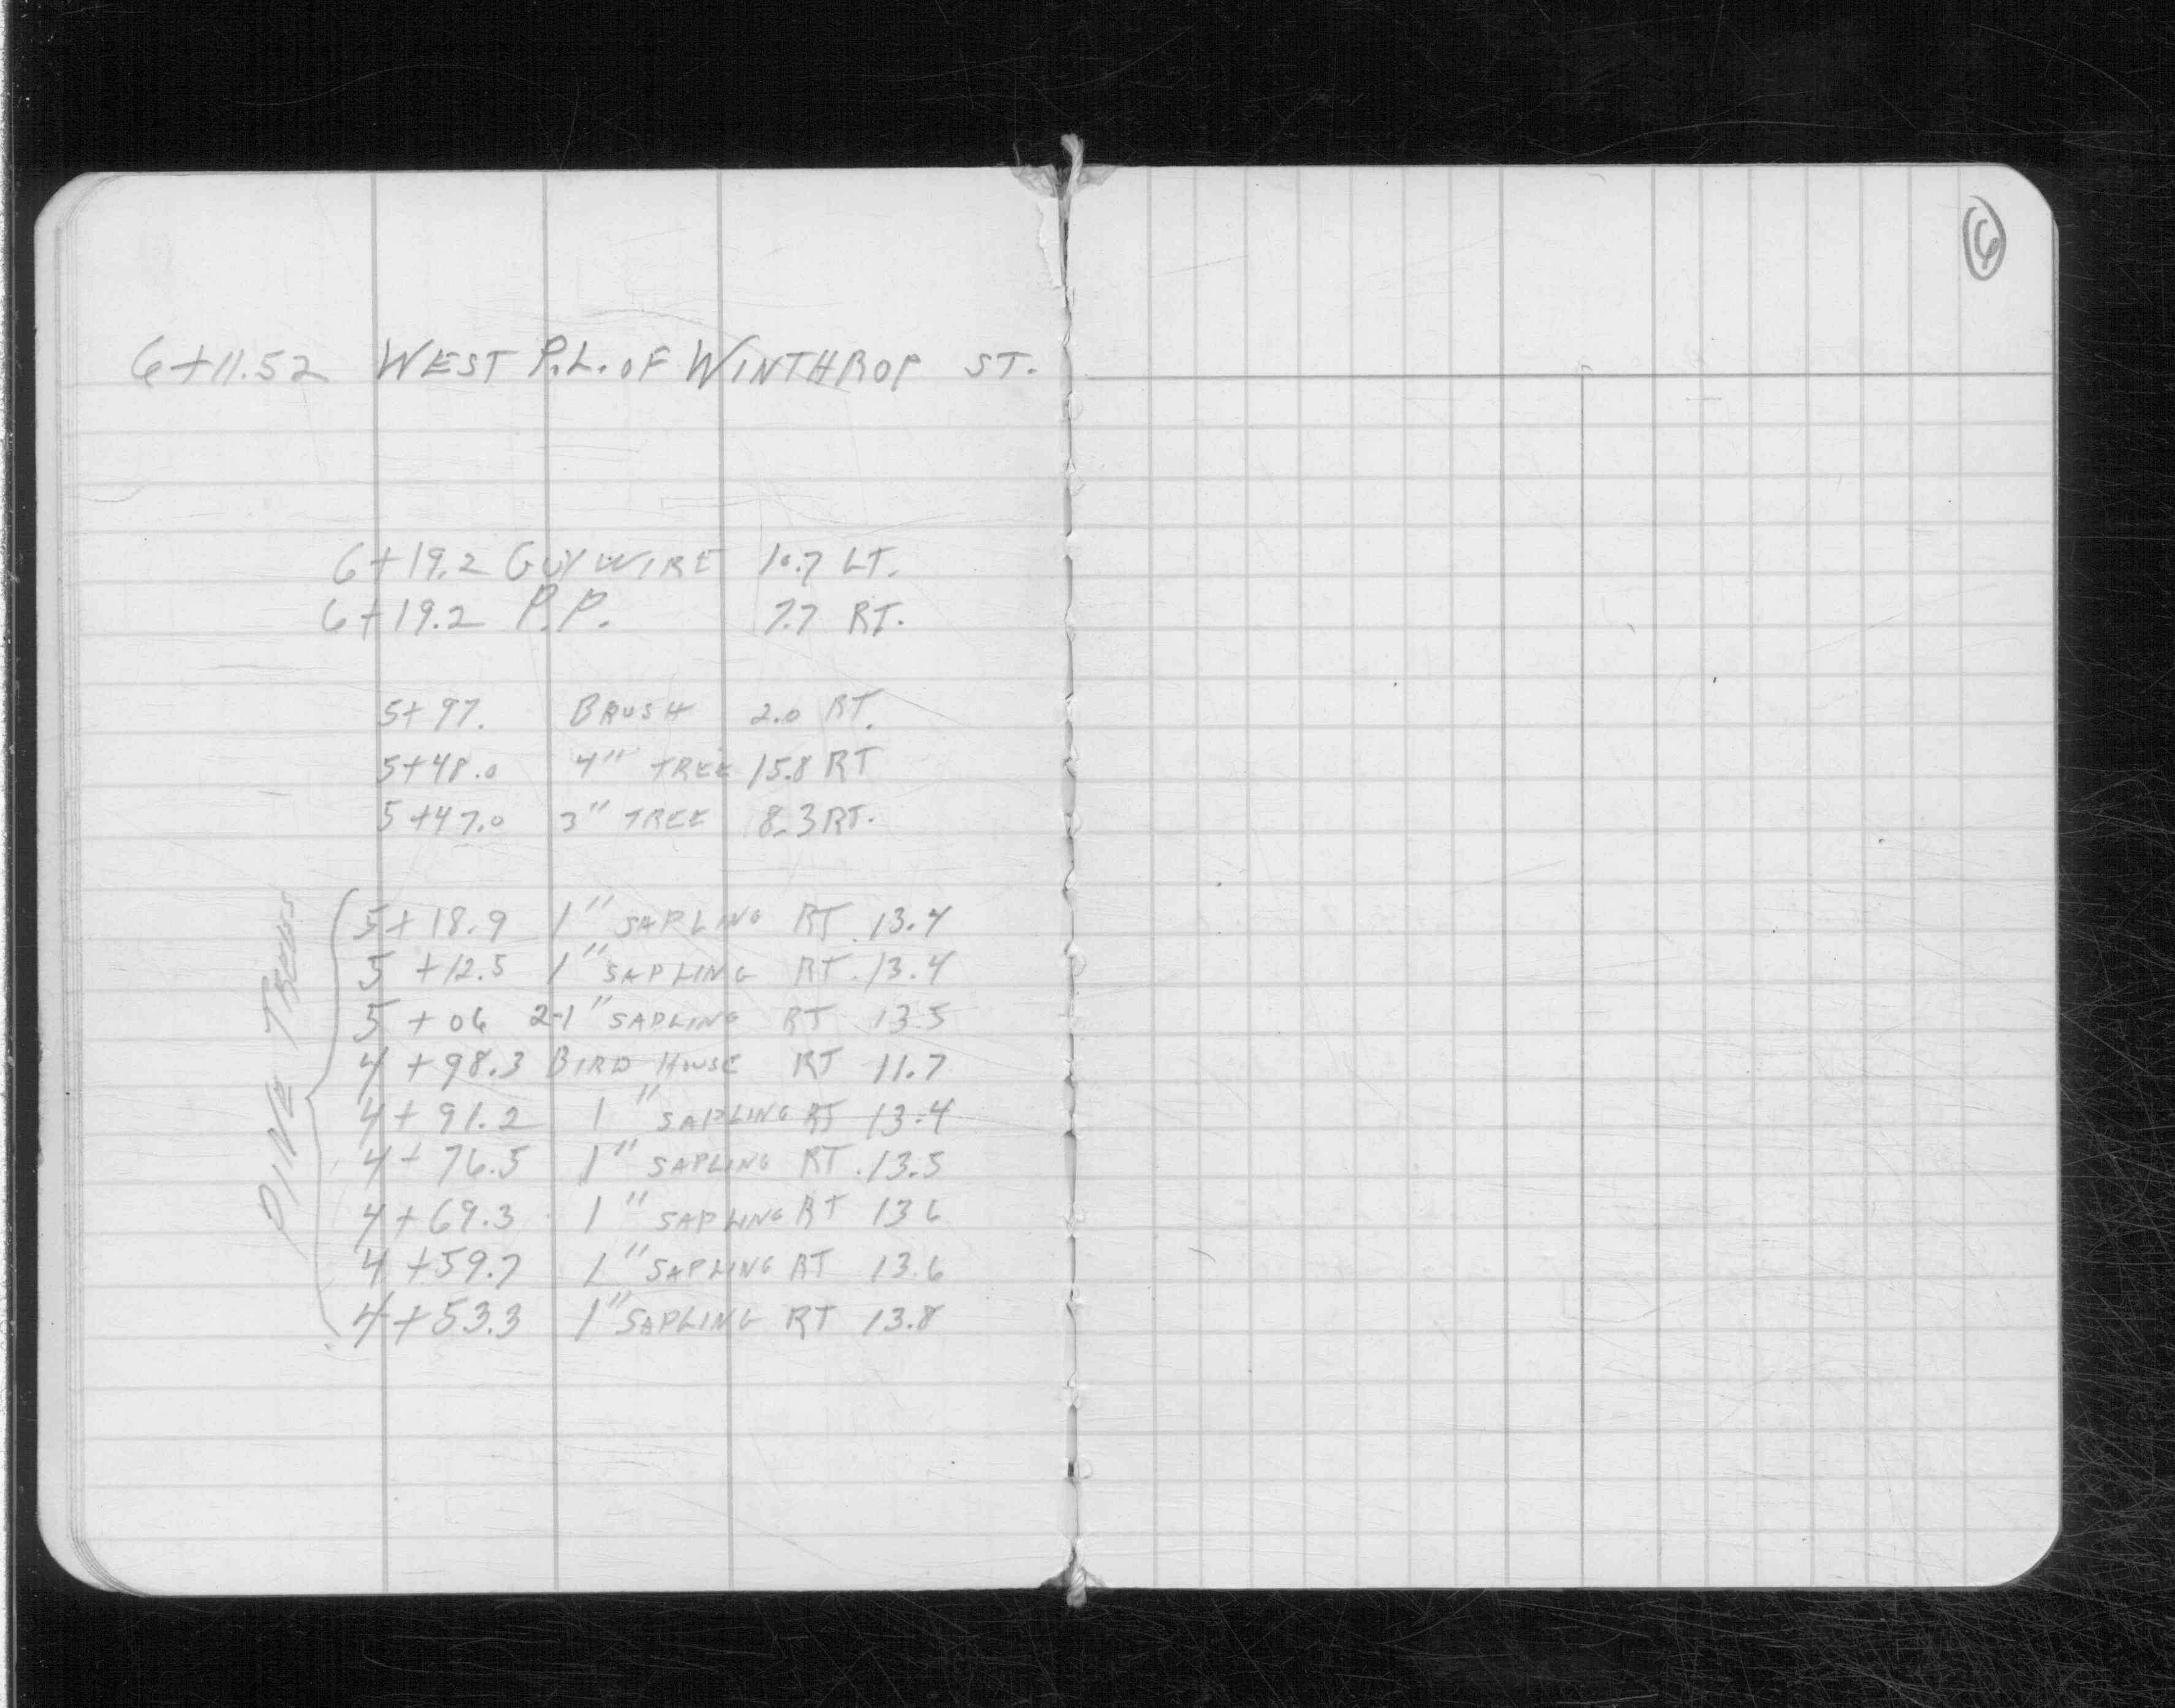 6
6+11.52 WEST P.L. OF WINTHROP ST.
6+19.2 GUY WIRE 10.7 LT.
6+19.2 P.P. 7.7 RT.
5+97. BRUSH 2.0 RT.
5+48.0 4" TREE 15.8 RT
5+47.0 3" TREE 8.3 RT.
PINE TREES
5+18.9 1" SAPLING RT. 13.4
5+12.5 1" SAPLING RT. 13.4
5+06 2-1" SAPLING RT 13.5
4+98.3 BIRD HOUSE RT 11.7
4+91.2 1" SAPLING RT 13.4
4+76.5 1" SAPLING RT. 13.5
4+69.3 1" SAPLING RT 13 6
4+59.7 1" SAPLING RT 13.6
4+53.3 1" SAPLING RT 13.8